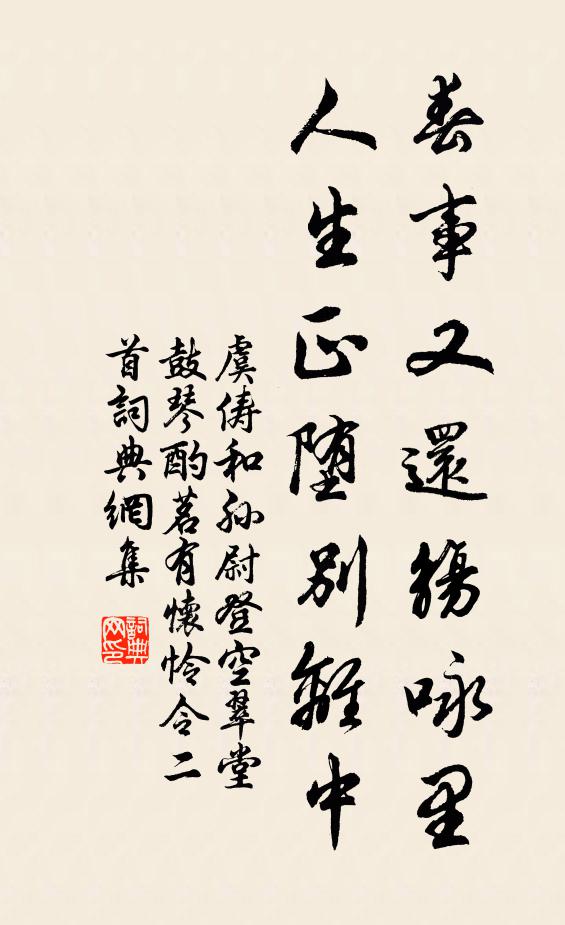 春事又還觴咏里
人生正堕別離中
虞俦和孙尉登空翠堂
鼓琴酌茗有懷怜令二
首詞典網集
詞典
网印